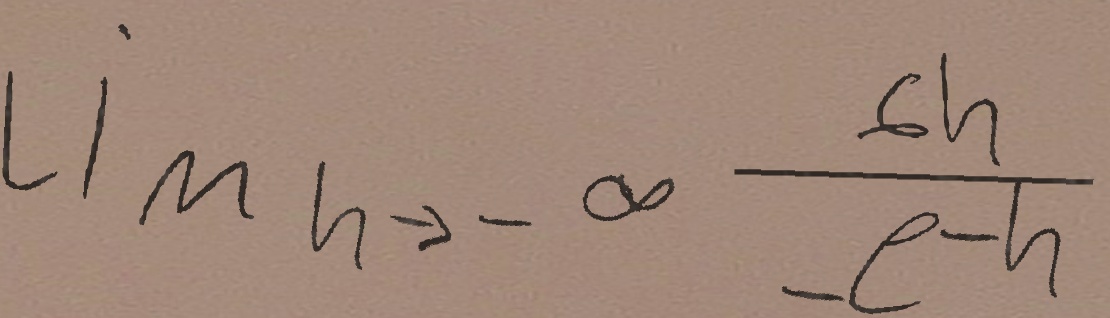 \lim_{h \to -\infty} \frac{2h}{-e^{-h}}